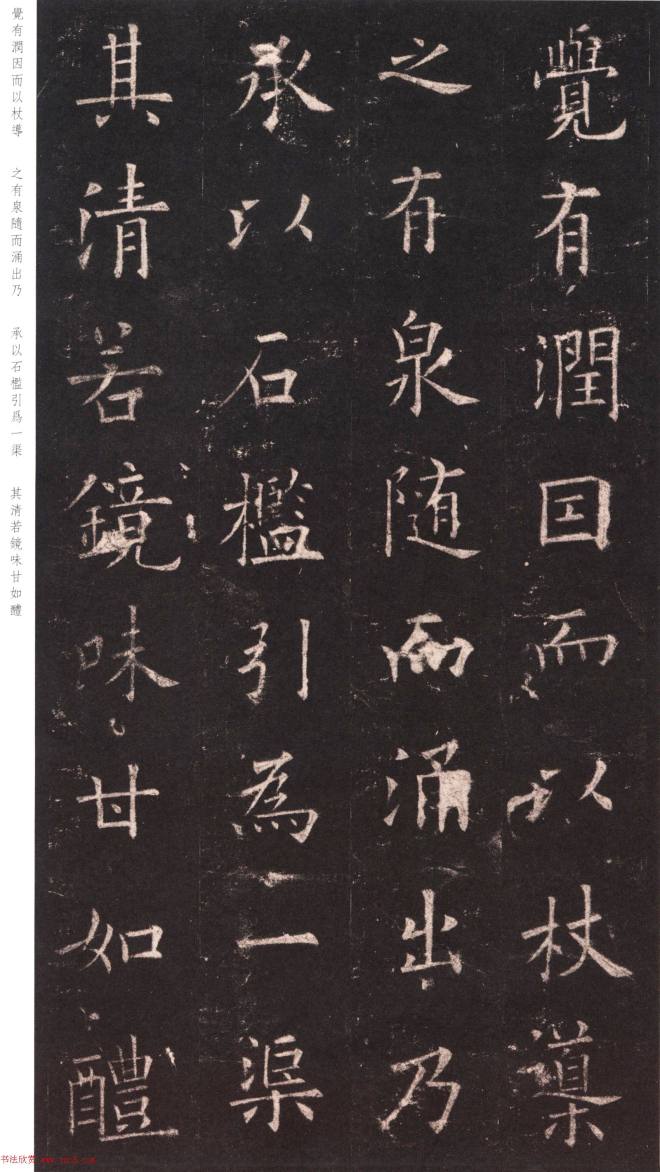 覺有潤因而以杖導
之有泉随而涌出乃
承以石檻引為一渠
其清若鏡味甘如醴
覺有潤因而以杖導 之有泉隨而涌出乃 承以石檻引爲一渠 其清若鏡味甘如醴
书法欣赏